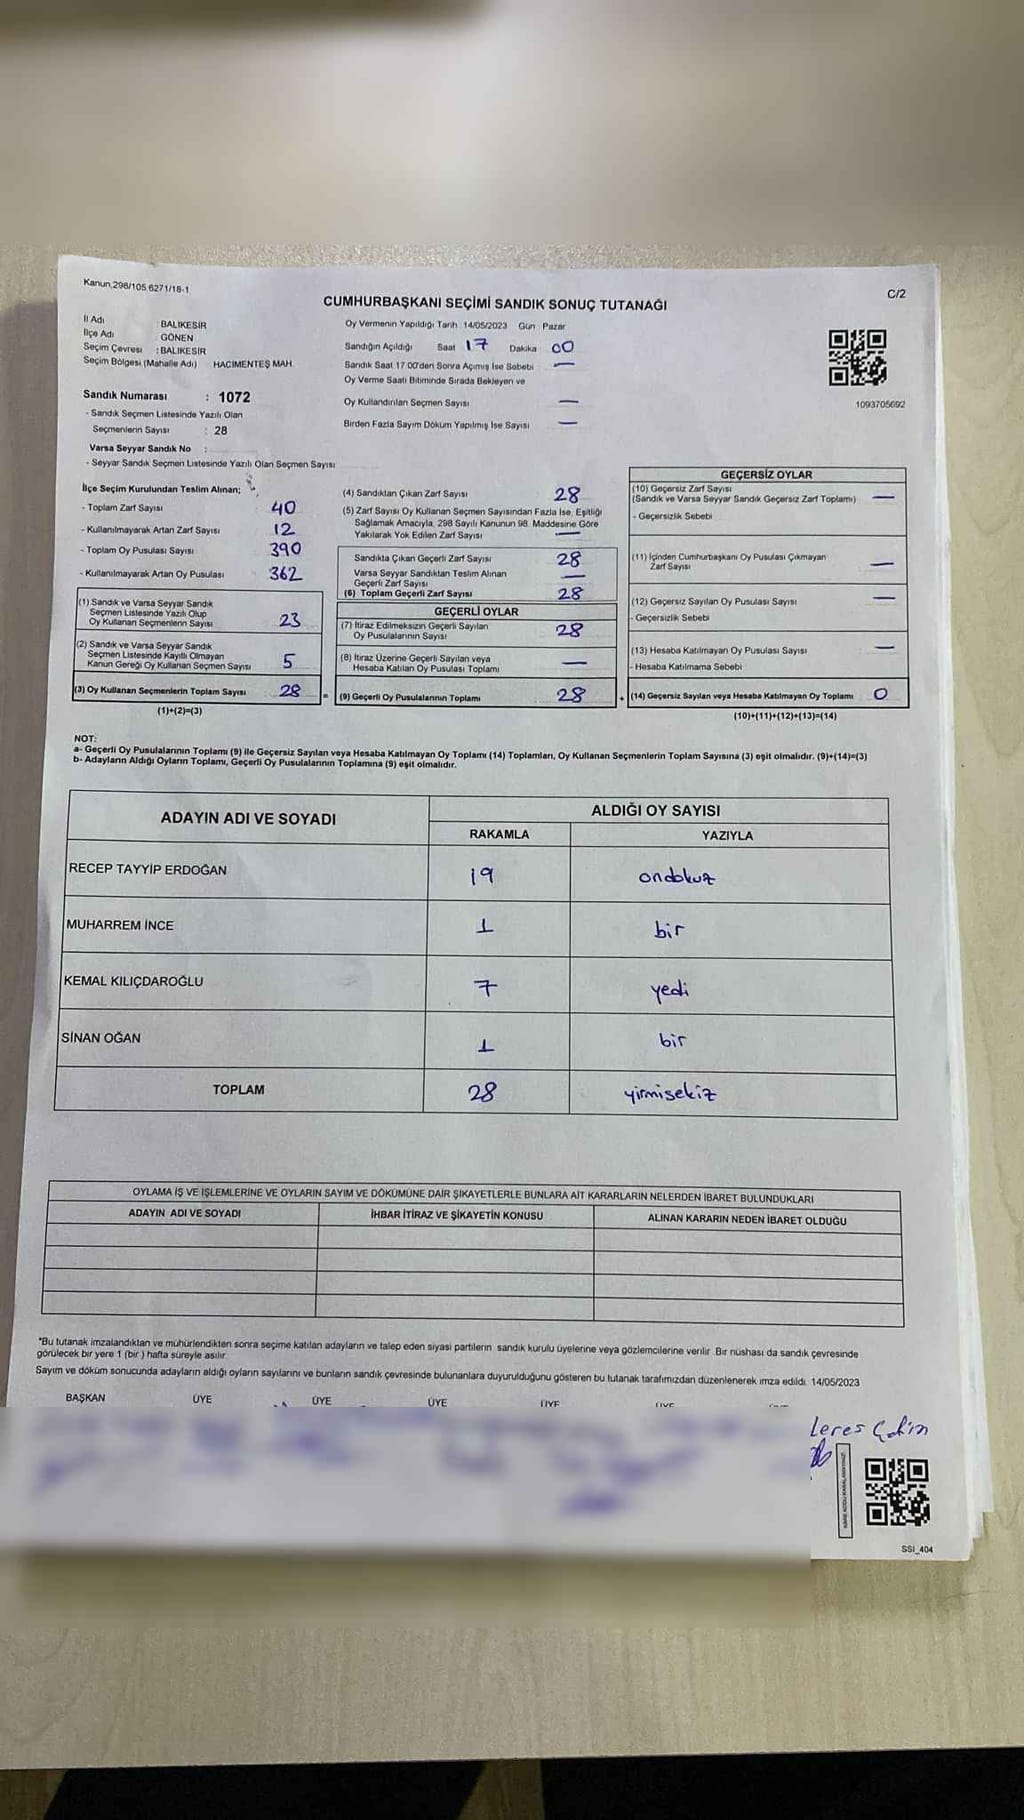 Kanun,298/105 6271/18-1
C/2
CUMHURBAŞKANI SEÇİMİ SANDIK SONUÇ TUTANAĞI
İl Adı : BALIKESİR
İlçe Adı : GÖNEN
Seçim Çevresi : BALIKESİR
Seçim Bölgesi (Mahalle Adı) HACIMENTEŞ MAH
Sandık Numarası : 1072
- Sandık Seçmen Listesinde Yazılı Olan
Seçmenlerin Sayısı : 28
Varsa Seyyar Sandık No :
- Seyyar Sandık Seçmen Listesinde Yazılı Olan Seçmen Sayısı
Oy Vermenin Yapıldığı Tarih 14/05/2023 Gün Pazar
Sandığın Açıldığı Saat 17 Dakika 00
Sandık Saat 17 00'den Sonra Açımış İse Sebebi —
Oy Verme Saati Bitiminde Sırada Bekleyen ve
Oy Kullandırılan Seçmen Sayısı —
Birden Fazla Sayım Döküm Yapılmış İse Sayısı —
1093705692
İlçe Seçim Kurulundan Teslim Alınan;
- Toplam Zarf Sayısı 40
- Kullanılmayarak Artan Zarf Sayısı 12
- Toplam Oy Pusulası Sayısı 390
- Kullanılmayarak Artan Oy Pusulası 362
(1) Sandık ve Varsa Seyyar Sandık
Seçmen Listesinde Yazılı Olup
Oy Kullanan Seçmenlerin Sayısı 23
(2) Sandık ve Varsa Seyyar Sandık
Seçmen Listesinde Kayıtlı Olmayan
Kanun Gereği Oy Kullanan Seçmen Sayısı 5
(3) Oy Kullanan Seçmenlerin Toplam Sayısı 28
(1)+(2)=(3)
(4) Sandıktan Çıkan Zarf Sayısı 28
(5) Zarf Sayısı Oy Kullanan Seçmen Sayısından Fazla İse, Eşitliği
Sağlamak Amacıyla, 298 Sayılı Kanunun 98. Maddesine Göre
Yakılarak Yok Edilen Zarf Sayısı —
Sandıkta Çıkan Geçerli Zarf Sayısı 28
Varsa Seyyar Sandıktan Teslim Alınan
Geçerli Zarf Sayısı —
(6) Toplam Geçerli Zarf Sayısı 28
GEÇERLİ OYLAR
(7) İtiraz Edilmeksizin Geçerli Sayılan
Oy Pusulalarının Sayısı 28
(8) İtiraz Üzerine Geçerli Sayılan veya
Hesaba Katılan Oy Pusulası Toplamı —
= (9) Geçerli Oy Pusulalarının Toplamı 28
GEÇERSİZ OYLAR
(10) Geçersiz Zarf Sayısı
(Sandık ve Varsa Seyyar Sandık Geçersiz Zarf Toplamı) —
- Geçersizlik Sebebi
(11) İçinden Cumhurbaşkanı Oy Pusulası Çıkmayan
Zarf Sayısı —
(12) Geçersiz Sayılan Oy Pusulası Sayısı —
- Geçersizlik Sebebi
(13) Hesaba Katılmayan Oy Pusulası Sayısı —
- Hesaba Katılmama Sebebi
+ (14) Geçersiz Sayılan veya Hesaba Katılmayan Oy Toplamı 0
(10)+(11)+(12)+(13)=(14)
NOT:
a- Geçerli Oy Pusulalarının Toplamı (9) ile Geçersiz Sayılan veya Hesaba Katılmayan Oy Toplamı (14) Toplamları, Oy Kullanan Seçmenlerin Toplam Sayısına (3) eşit olmalıdır. (9)+(14)=(3)
b- Adayların Aldığı Oyların Toplamı, Geçerli Oy Pusulalarının Toplamına (9) eşit olmalıdır.
ADAYIN ADI VE SOYADI ALDIĞI OY SAYISI
RAKAMLA YAZIYLA
RECEP TAYYİP ERDOĞAN 19 ondokuz
MUHARREM İNCE 1 bir
KEMAL KILIÇDAROĞLU 7 yedi
SİNAN OĞAN 1 bir
TOPLAM 28 yirmisekiz
OYLAMA İŞ VE İŞLEMLERİNE VE OYLARIN SAYIM VE DÖKÜMÜNE DAİR ŞİKAYETLERLE BUNLARA AİT KARARLARIN NELERDEN İBARET BULUNDUKLARI
ADAYIN ADI VE SOYADI İHBAR İTİRAZ VE ŞİKAYETİN KONUSU ALINAN KARARIN NEDEN İBARET OLDUĞU
*Bu tutanak imzalandıktan ve mühürlendikten sonra seçime katılan adayların ve talep eden siyasi partilerin sandık kurulu üyelerine veya gözlemcilerine verilir. Bir nüshası da sandık çevresinde
görülecek bir yere 1 (bir ) hafta süreyle asılır.
Sayım ve döküm sonucunda adayların aldığı oyların sayılarını ve bunların sandık çevresinde bulunanlara duyurulduğunu gösteren bu tutanak tarafımızdan düzenlenerek imza edildi. 14/05/2023
BAŞKAN ÜYE ÜYE ÜYE ÜYE ÜYE
SSI_404